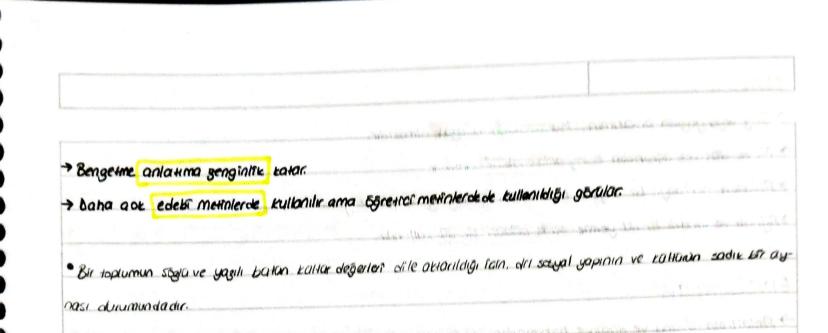 → Benzetme anlatıma zenginlik katar.
→ Daha çok edebî metinlerde kullanılır ama öğretici metinlerde de kullanıldığı görülür.
• Bir toplumun sözlü ve yazılı bütün kültür değerleri dile aktarıldığı için, dil sosyal yapının ve kültürün sadık bir ay-
nası durumundadır.